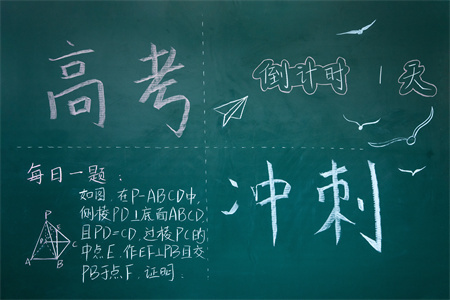 高考
倒计时 1 天
冲刺
每日一题:
如图,在P-ABCD中,
侧棱PD⊥底面ABCD,
且PD=CD,过棱PC的
中点E,作EF⊥PB且交
PB于点F.证明:
P
C
A B